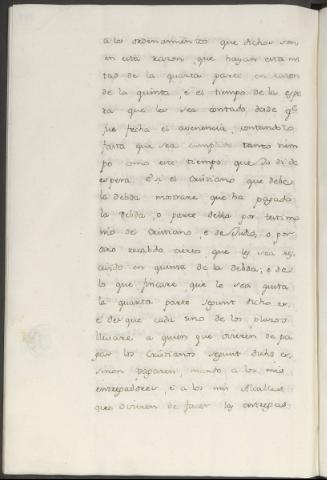 a los ordenamientos que dichos son
en esta razon, que hayan esta mi
tad de la quarta parte en razon
de la quinta, e el tiempo de la espe
ra que les sea contado desde qº
fue fecha el avenencia, contandolo
fasta que sea cumplido tanto tiem
po como este tiempo que Yo di de
espera. E si el Cristiano que debe
la debda mostrare que ha pagado
la debda, o parte della por testimo
nio de Cristiano e de Judio, o por
otro recabdo cierto, que les sea res
cibido en quenta de la debda; e de
lo que fincare que le sea quita
la quarta parte segunt dicho es.
E des que cada uno de los plazos
llegare, a quien que ovieren de pa
gar los Cristianos segunt dicho es,
sinon pagaren, mando a los mis
entregadores, e a los mis Alcalles
que ovieren de facer las entregas